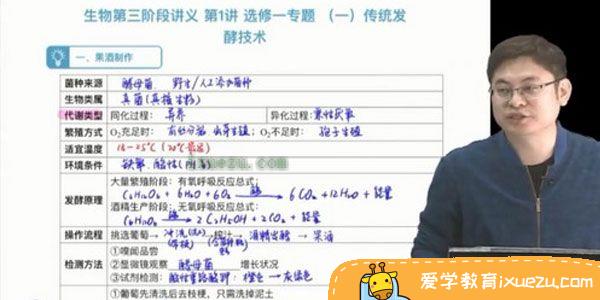 生物第三阶段讲义 第1讲 选修一专题 （一）传统发
酵技术
一、果酒制作
菌种来源 酵母菌 野生/人工添加菌种
生物类属 真菌(真核生物)
代谢类型 同化过程：异养 异化过程：兼性厌氧
繁殖方式 O₂充足时：有丝分裂 出芽生殖 O₂不足时：孢子生殖
适宜温度 18-25℃ (20℃最适)
环境条件 缺氧、酸性
发酵原理 大量繁殖阶段：有氧呼吸反应总式：
C₆H₁₂O₆ + 6H₂O + 6O₂ 酶→ 6CO₂ + 12H₂O + 能量
酒精生产阶段：无氧呼吸反应总式：
C₆H₁₂O₆ 酶→ 2C₂H₅OH + 2CO₂ + 能量
操作流程 挑选葡萄→冲洗→榨汁→酒精发酵→果酒
检测方法 ①嗅闻品尝
②显微镜观察 酵母菌 增长状况
③试剂检测：酸性重铬酸钾：橙色→灰绿色
①葡萄先清洗后去枝梗，只需洗掉泥土
爱学教育ixuezu.com